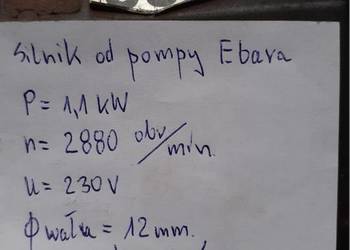 Silnik od pompy Ebara
P = 1,1 kW
n = 2880 obr/min.
u = 230 V
φ wałka = 12 mm.